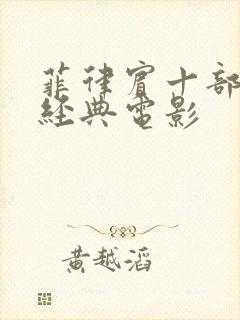 菲律賓十部
經典電影
黃越滔